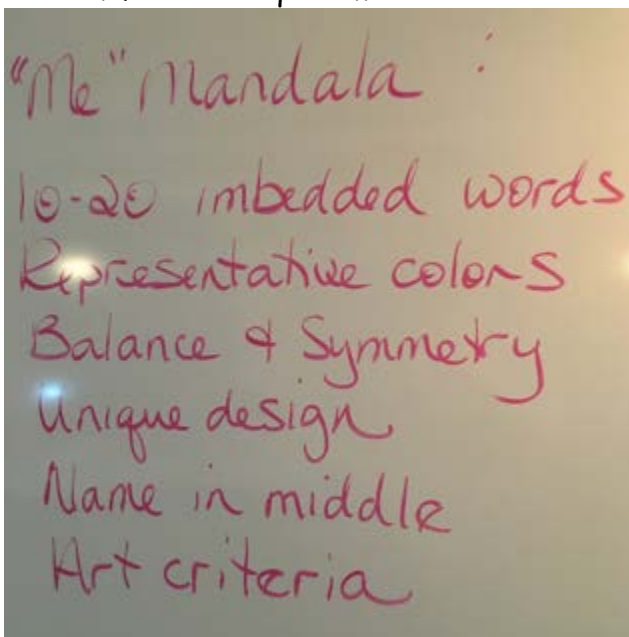 "Me" Mandala :
10-20 imbedded words
Representative colors
Balance & Symmetry
Unique design
Name in middle
Art criteria